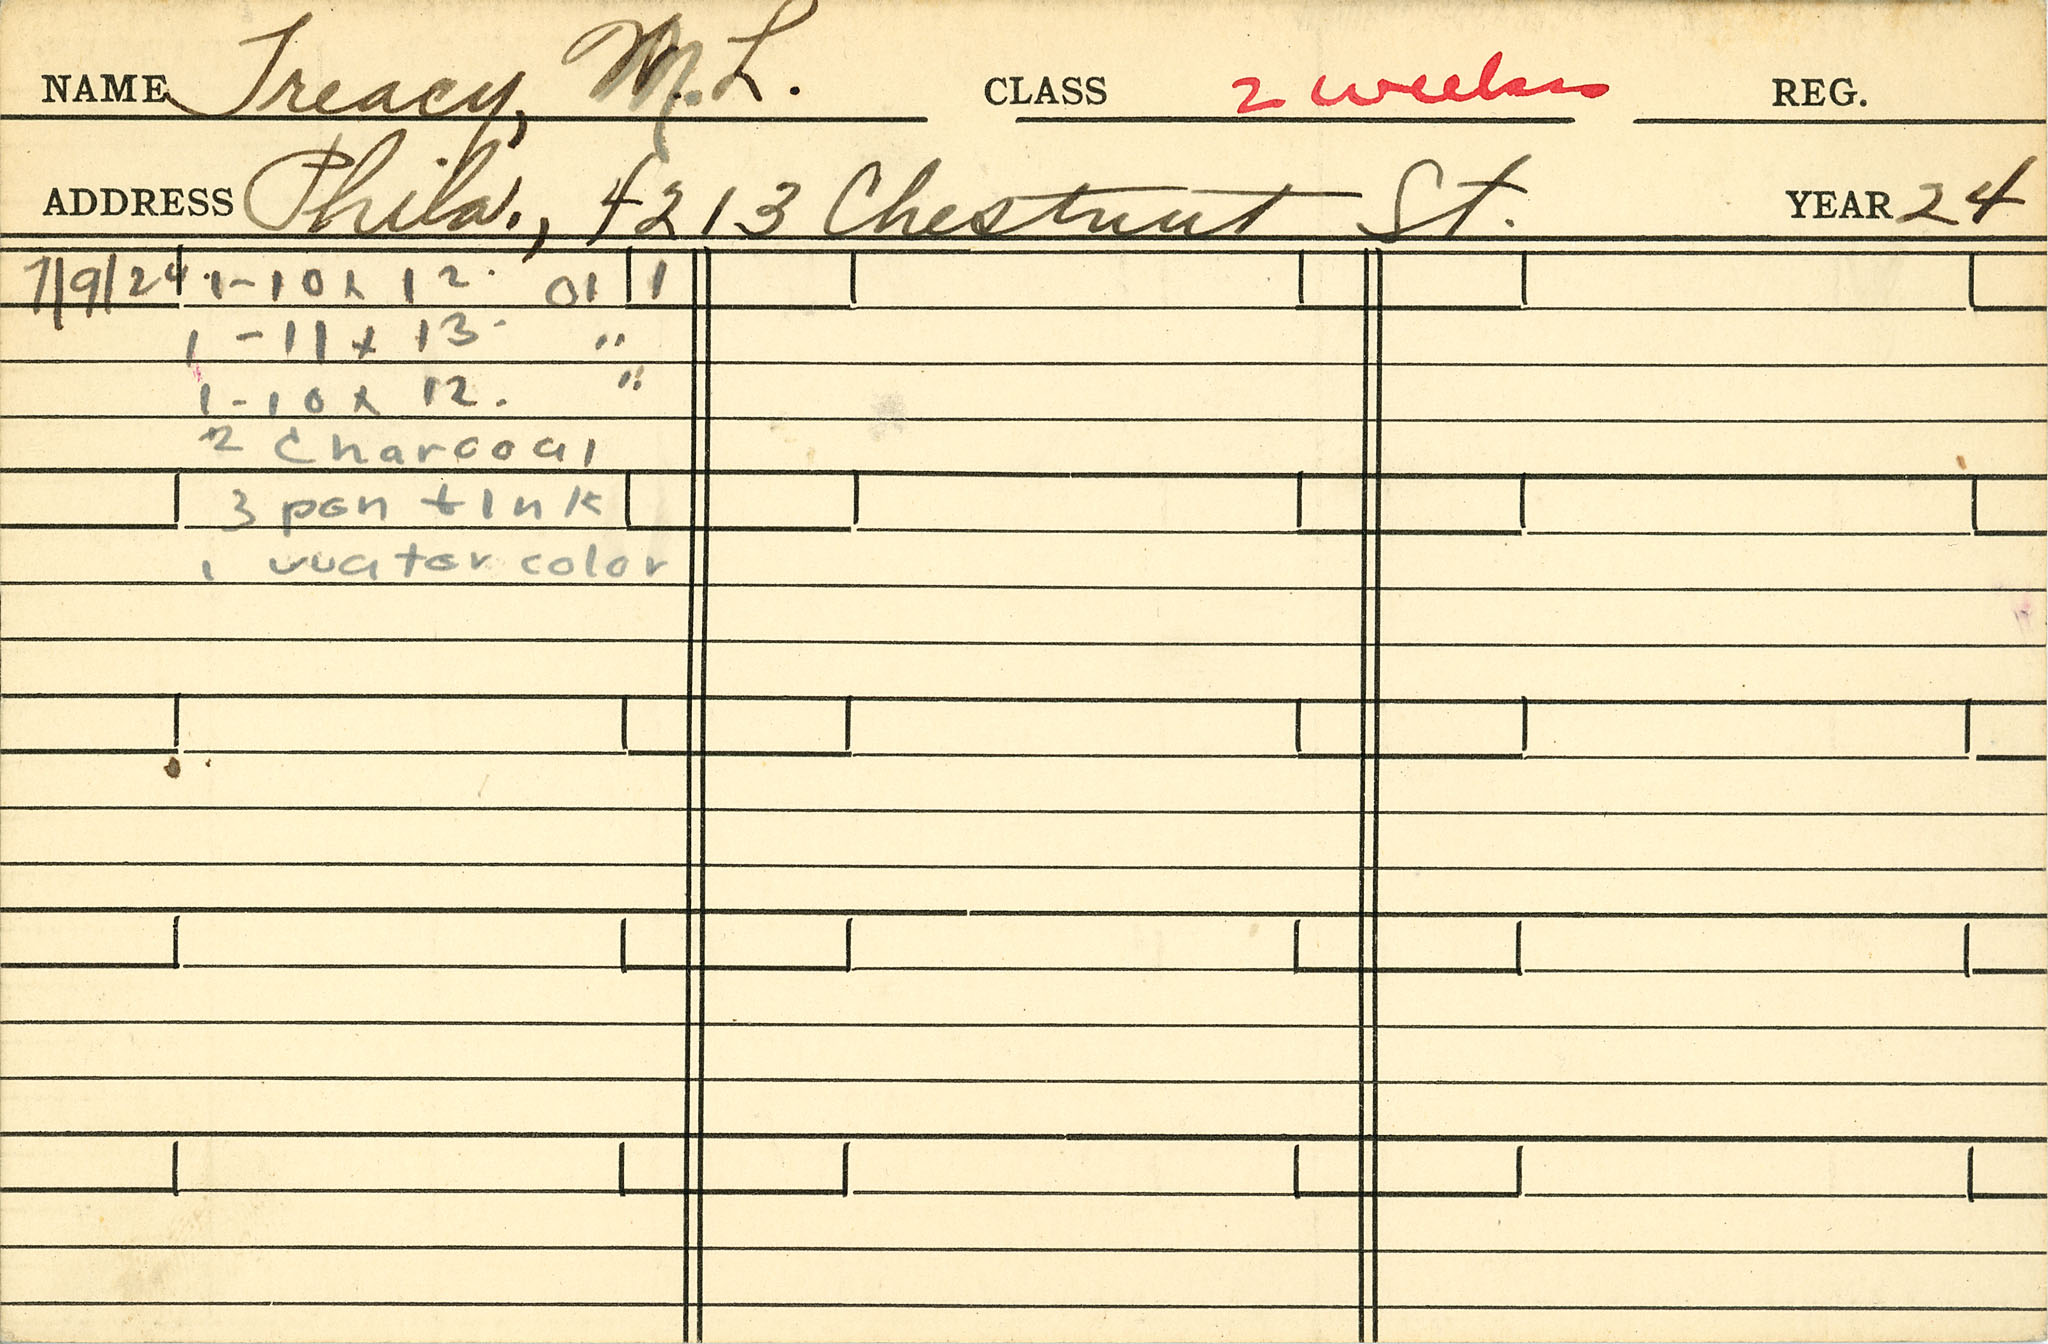 NAME Treacy, M. L. CLASS 2 weeks REG.
ADDRESS Phila., 4213 Chestnut St. YEAR 24
7/9/24 1-10 x 12. Oil
1-11 x 13. "
1-10 x 12. "
2 Charcoal
3 pen + Ink
1 water color